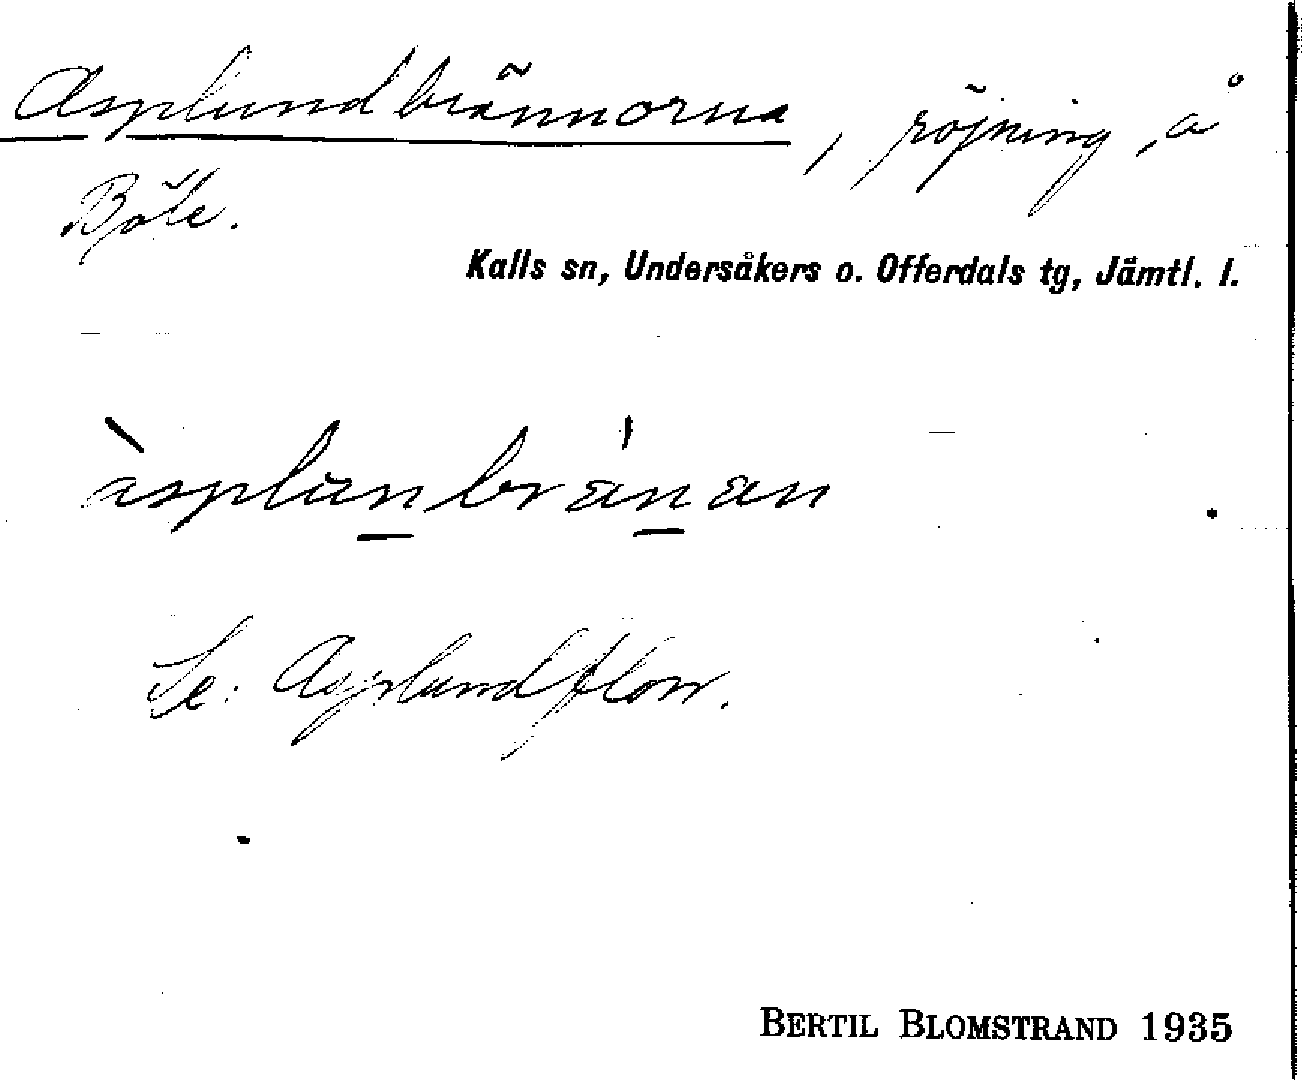 Asplundbrännorna, röjning, å
Böle.
Kalls sn, Undersåkers o. Offerdals tg, Jämtl. l.
àsplun̲brán̲an
Se: Asplundflon.
BERTIL BLOMSTRAND 1935